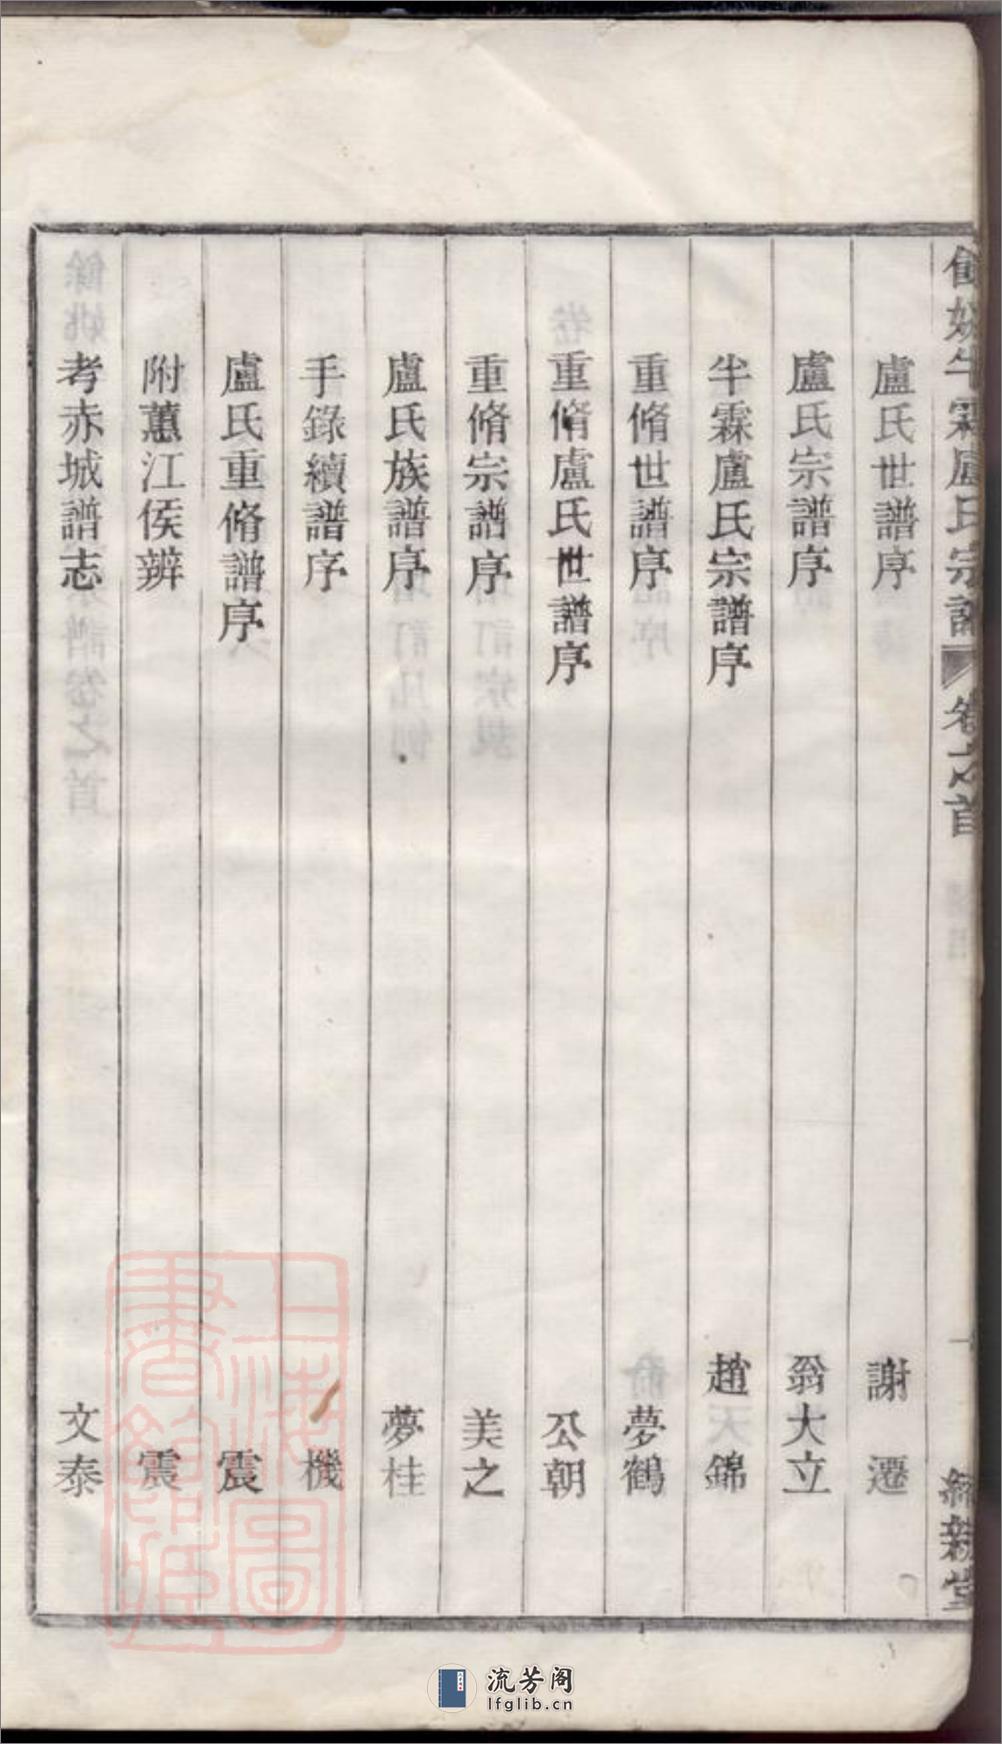 餘姚半霖盧氏宗譜 卷之首 一
盧氏世譜序 謝遷
盧氏宗譜序 翁大立
半霖盧氏宗譜序 趙錦
重脩世譜序 夢鶴
重脩盧氏世譜序 公朝
重脩宗譜序 美之
盧氏族譜序 夢桂
手錄續譜序 機
盧氏重脩譜序 震
附蕙江侯辨 震
考赤城譜志 文泰
上海圖書館藏
流芳阁
lfglib.cn